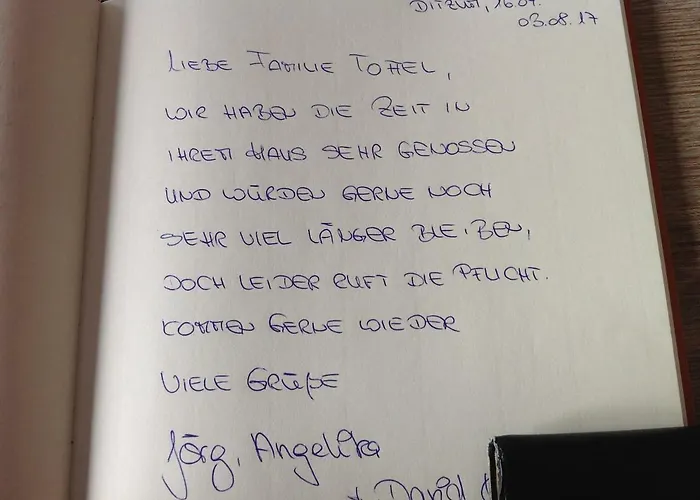 Ditzum, 16.07.
03.08.17
Liebe Familie Toffel,
wir haben die Zeit in
Ihrem Haus sehr genossen
und würden gerne noch
sehr viel länger bleiben,
doch leider ruft die Pflicht.
Kommen gerne wieder
Viele Grüße
Jörg, Angelika
+ David